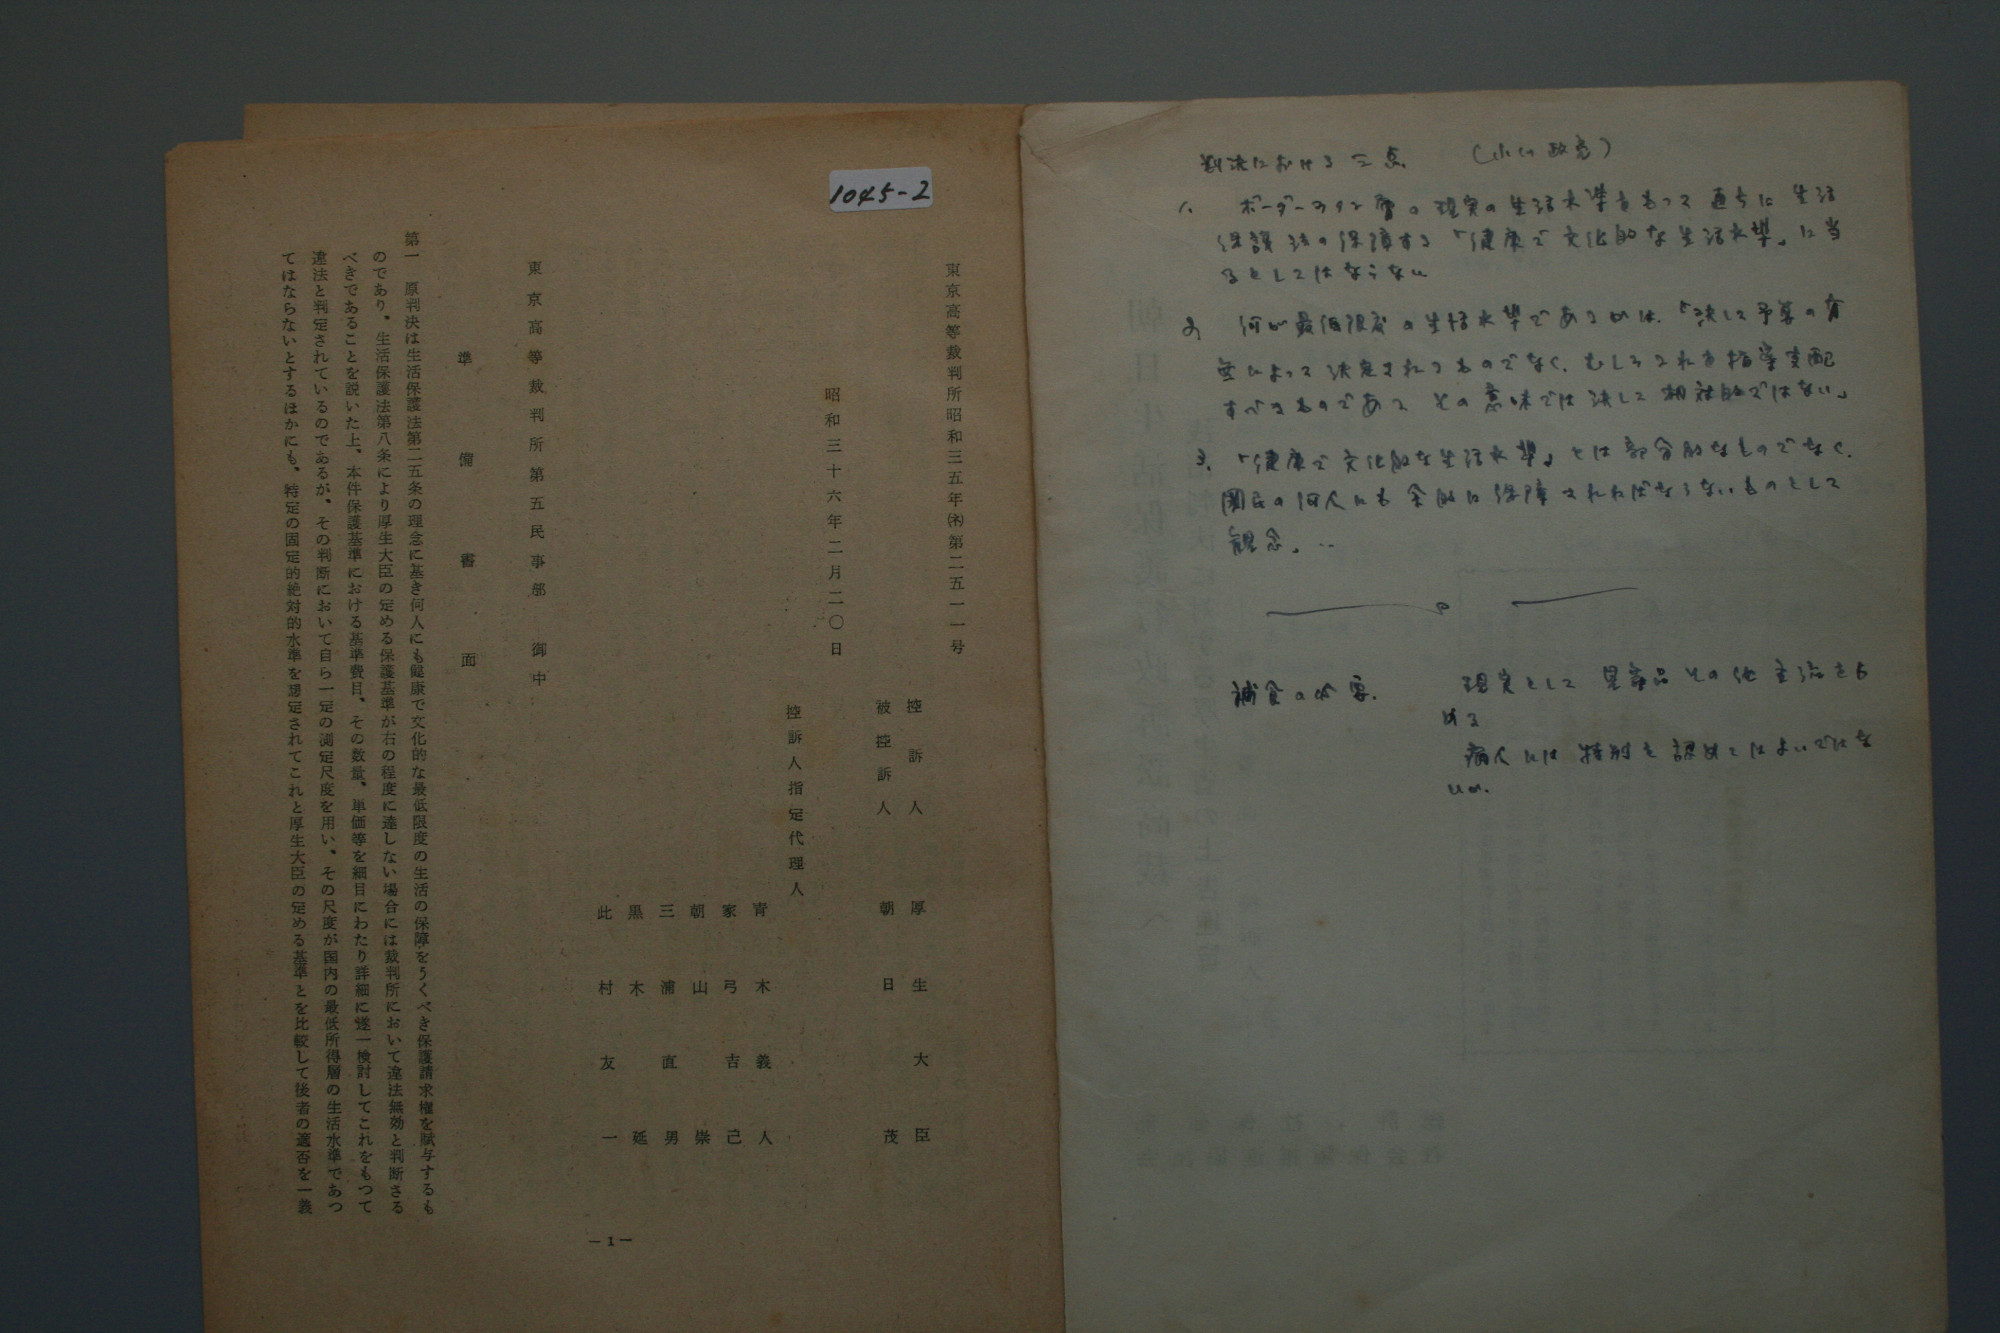 判決における三点 (小川政亮)
1. ボーダーライン層の現実の生活水準をもって直ちに生活
保護法の保障する「健康で文化的な生活水準」に当
るとしてはならない
2 何が最低限度の生活水準であるかは、「決して予算の有
無によって決定されるものでなく、むしろこれを指導支配
すべきものであって その意味では決して相対的ではない」
3. 「健康で文化的な生活水準」とは部分的なものでなく、
国民の何人にも全的に保障されねばならないものとして
観念」‥
補食の必要.
現実として 見舞品その他 を
みる
病人には特別を認めてはよいではな
いか.
1045-2
東京高等裁判所昭和三五年(ネ)第二五一一号
控訴人 厚生大臣
被控訴人 朝日茂
昭和三十六年二月二〇日
控訴人指定代理人
青木義人
家弓吉己
朝山崇
三浦直男
黒木延
此村友一
東京高等裁判所第五民事部 御中
準備書面
第一 原判決は生活保護法第二五条の理念に基き何人にも健康で文化的な最低限度の生活の保障をうくべき保護請求権を賦与するも
のであり、生活保護法第八条により厚生大臣の定める保護基準が右の程度に達しない場合には裁判所において違法無効と判断さる
べきであることを説いた上、本件保護基準における基準費目、その数量、単価等を細目にわたり詳細に逐一検討してこれをもつて
違法と判定されているのであるが、その判断において自ら一定の測定尺度を用い、その尺度が国内の最低所得層の生活水準であつ
てはならないとするほかにも、特定の固定的絶対的水準を想定されてこれと厚生大臣の定める基準とを比較して後者の適否を一義
—1—